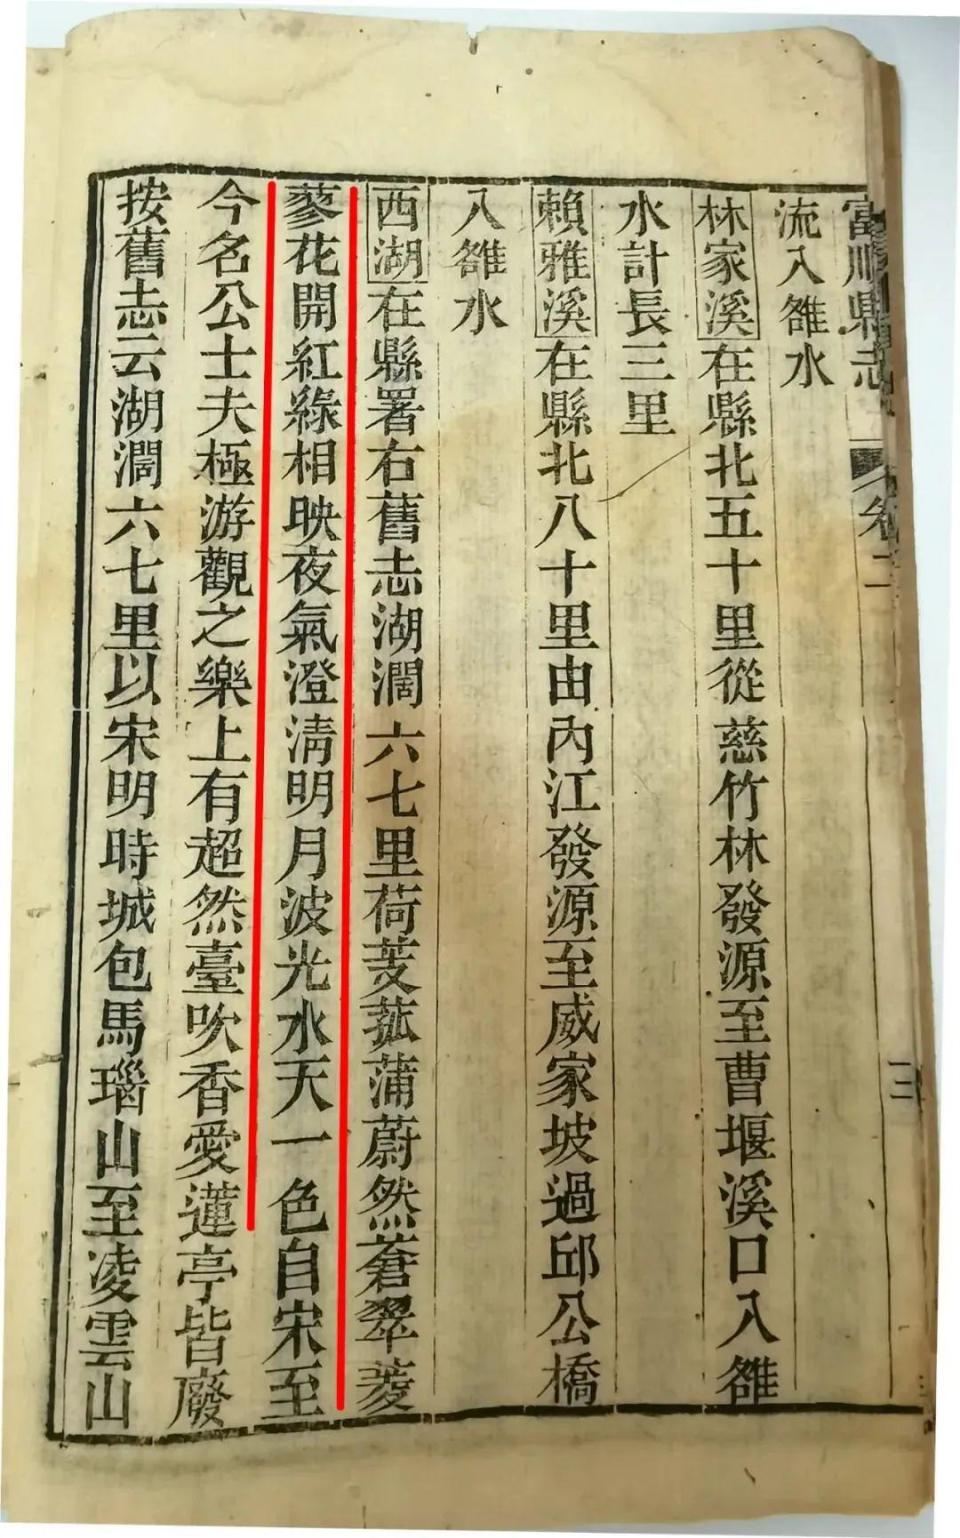 富順縣志 卷二
三
流入雒水
林家溪在縣北五十里從慈竹林發源至曹堰溪口入雒
水計長三里
賴雅溪在縣北八十里由內江發源至威家坡過邱公橋
入雒水
西湖在縣署右舊志湖濶六七里荷芰菰蒲蔚然蒼翠菱
蓼花開紅綠相映夜氣澄清明月波光水天一色自宋至
今名公士夫極游觀之樂上有超然臺吹香愛蓮亭皆廢
按舊志云湖濶六七里以宋明時城包馬瑙山至凌雲山